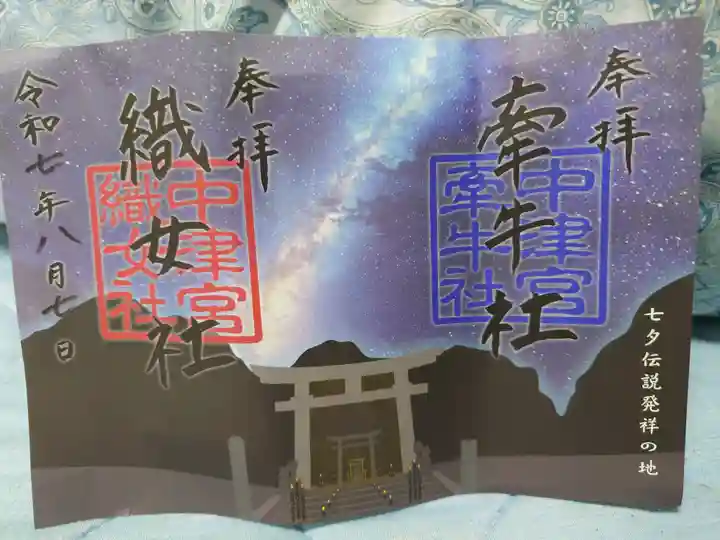 奉拝
牽牛社
中津宮
牽牛社
七夕伝説発祥の地
奉拝
織女社
中津宮
織女社
令和七年八月七日